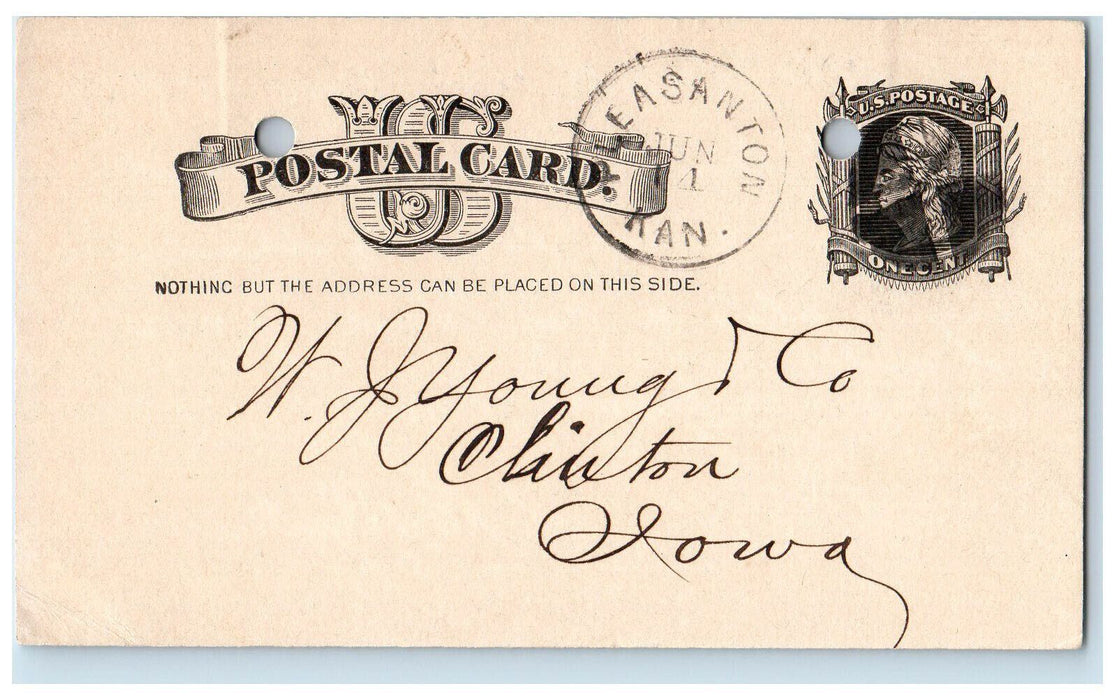 US
POSTAL CARD.
NOTHING BUT THE ADDRESS CAN BE PLACED ON THIS SIDE.
EASANTON
JUN
4
KAN.
U.S. POSTAGE
ONE CENT
W. J. Young & Co
Clinton
Iowa